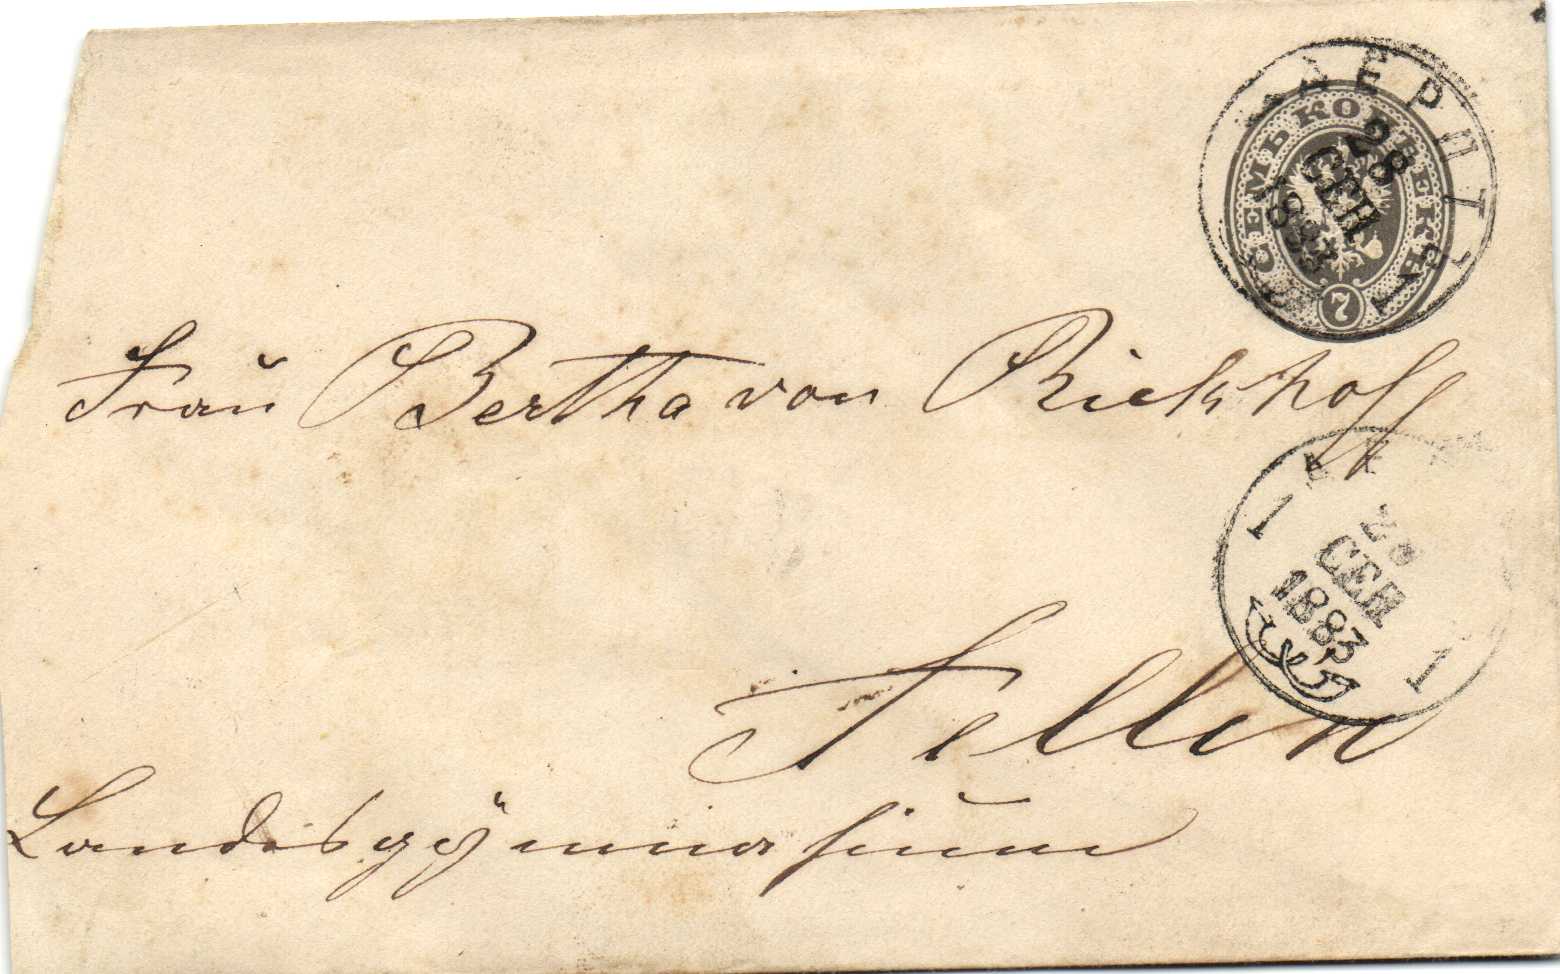 ДЕРПТЪ
28
СЕН
1883
1
СЕМЬ КОПѢЕКЪ
7
Frau Bertha von Rickhoff
1
28
СЕН
1883
1
Fellin
Landesgÿmnasium